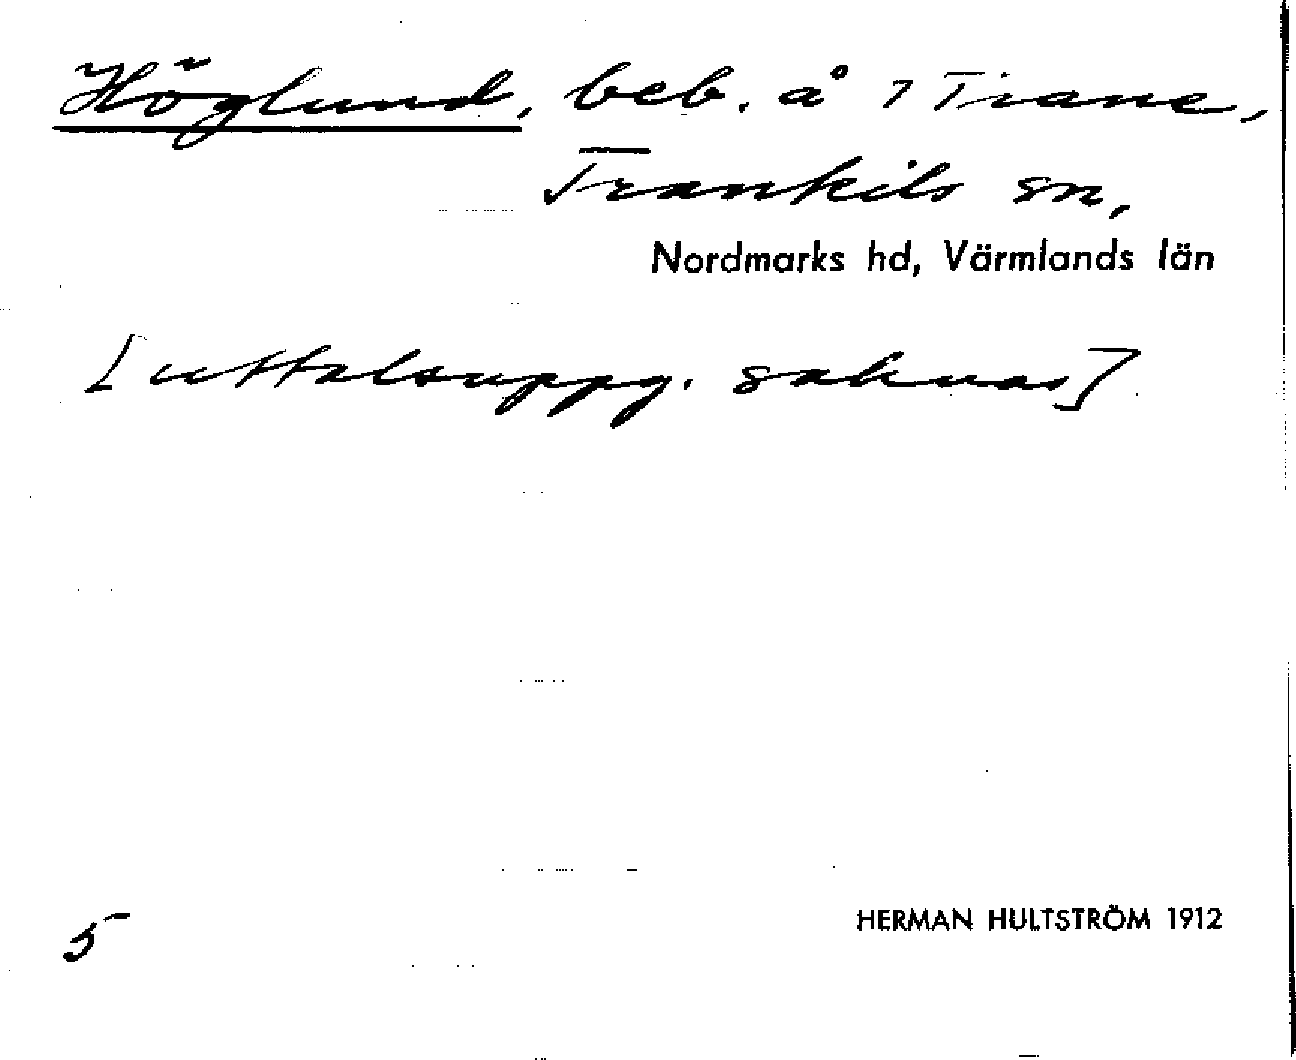 Höglund, beb. å 1 Trane,
Trankils sn,
Nordmarks hd, Värmlands län
[uttalsuppg. saknas]
5
HERMAN HULTSTRÖM 1912